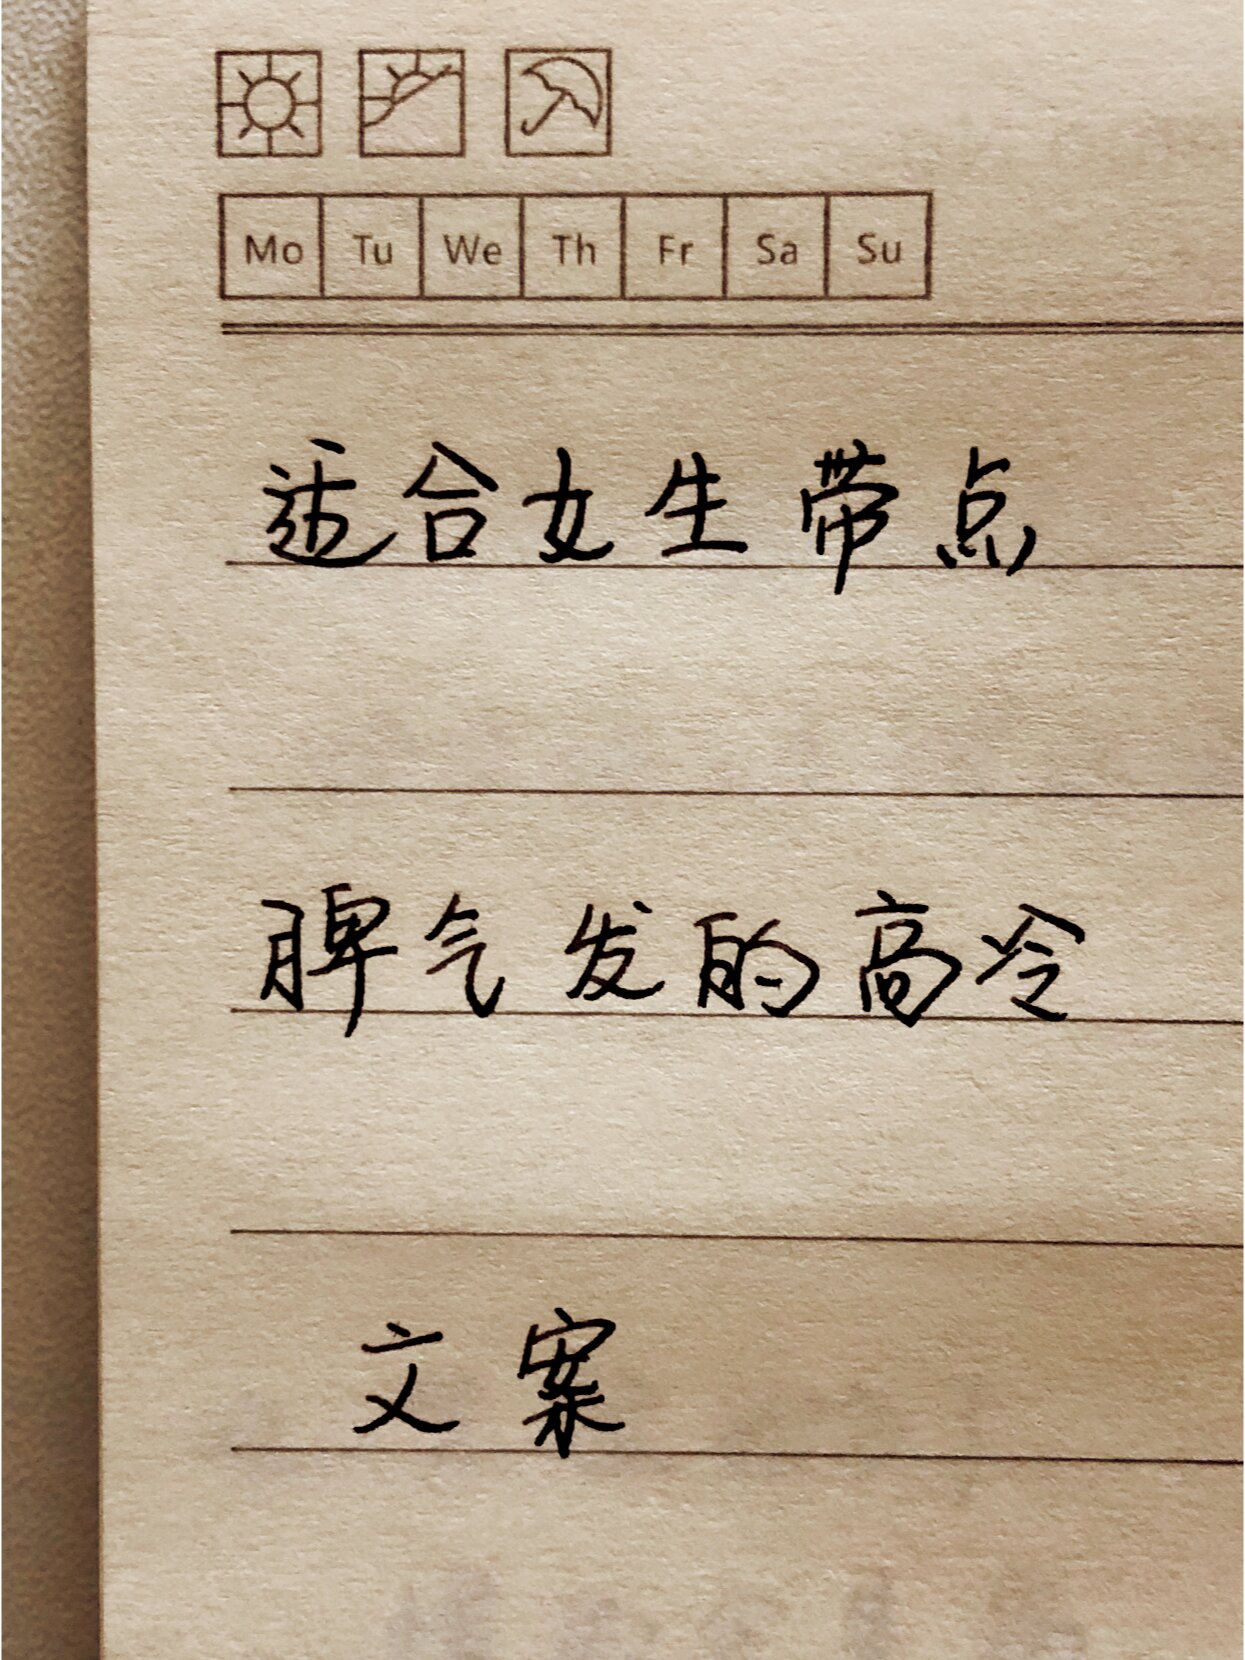 Mo Tu We Th Fr Sa Su
适合女生带点
脾气发的高冷
文案